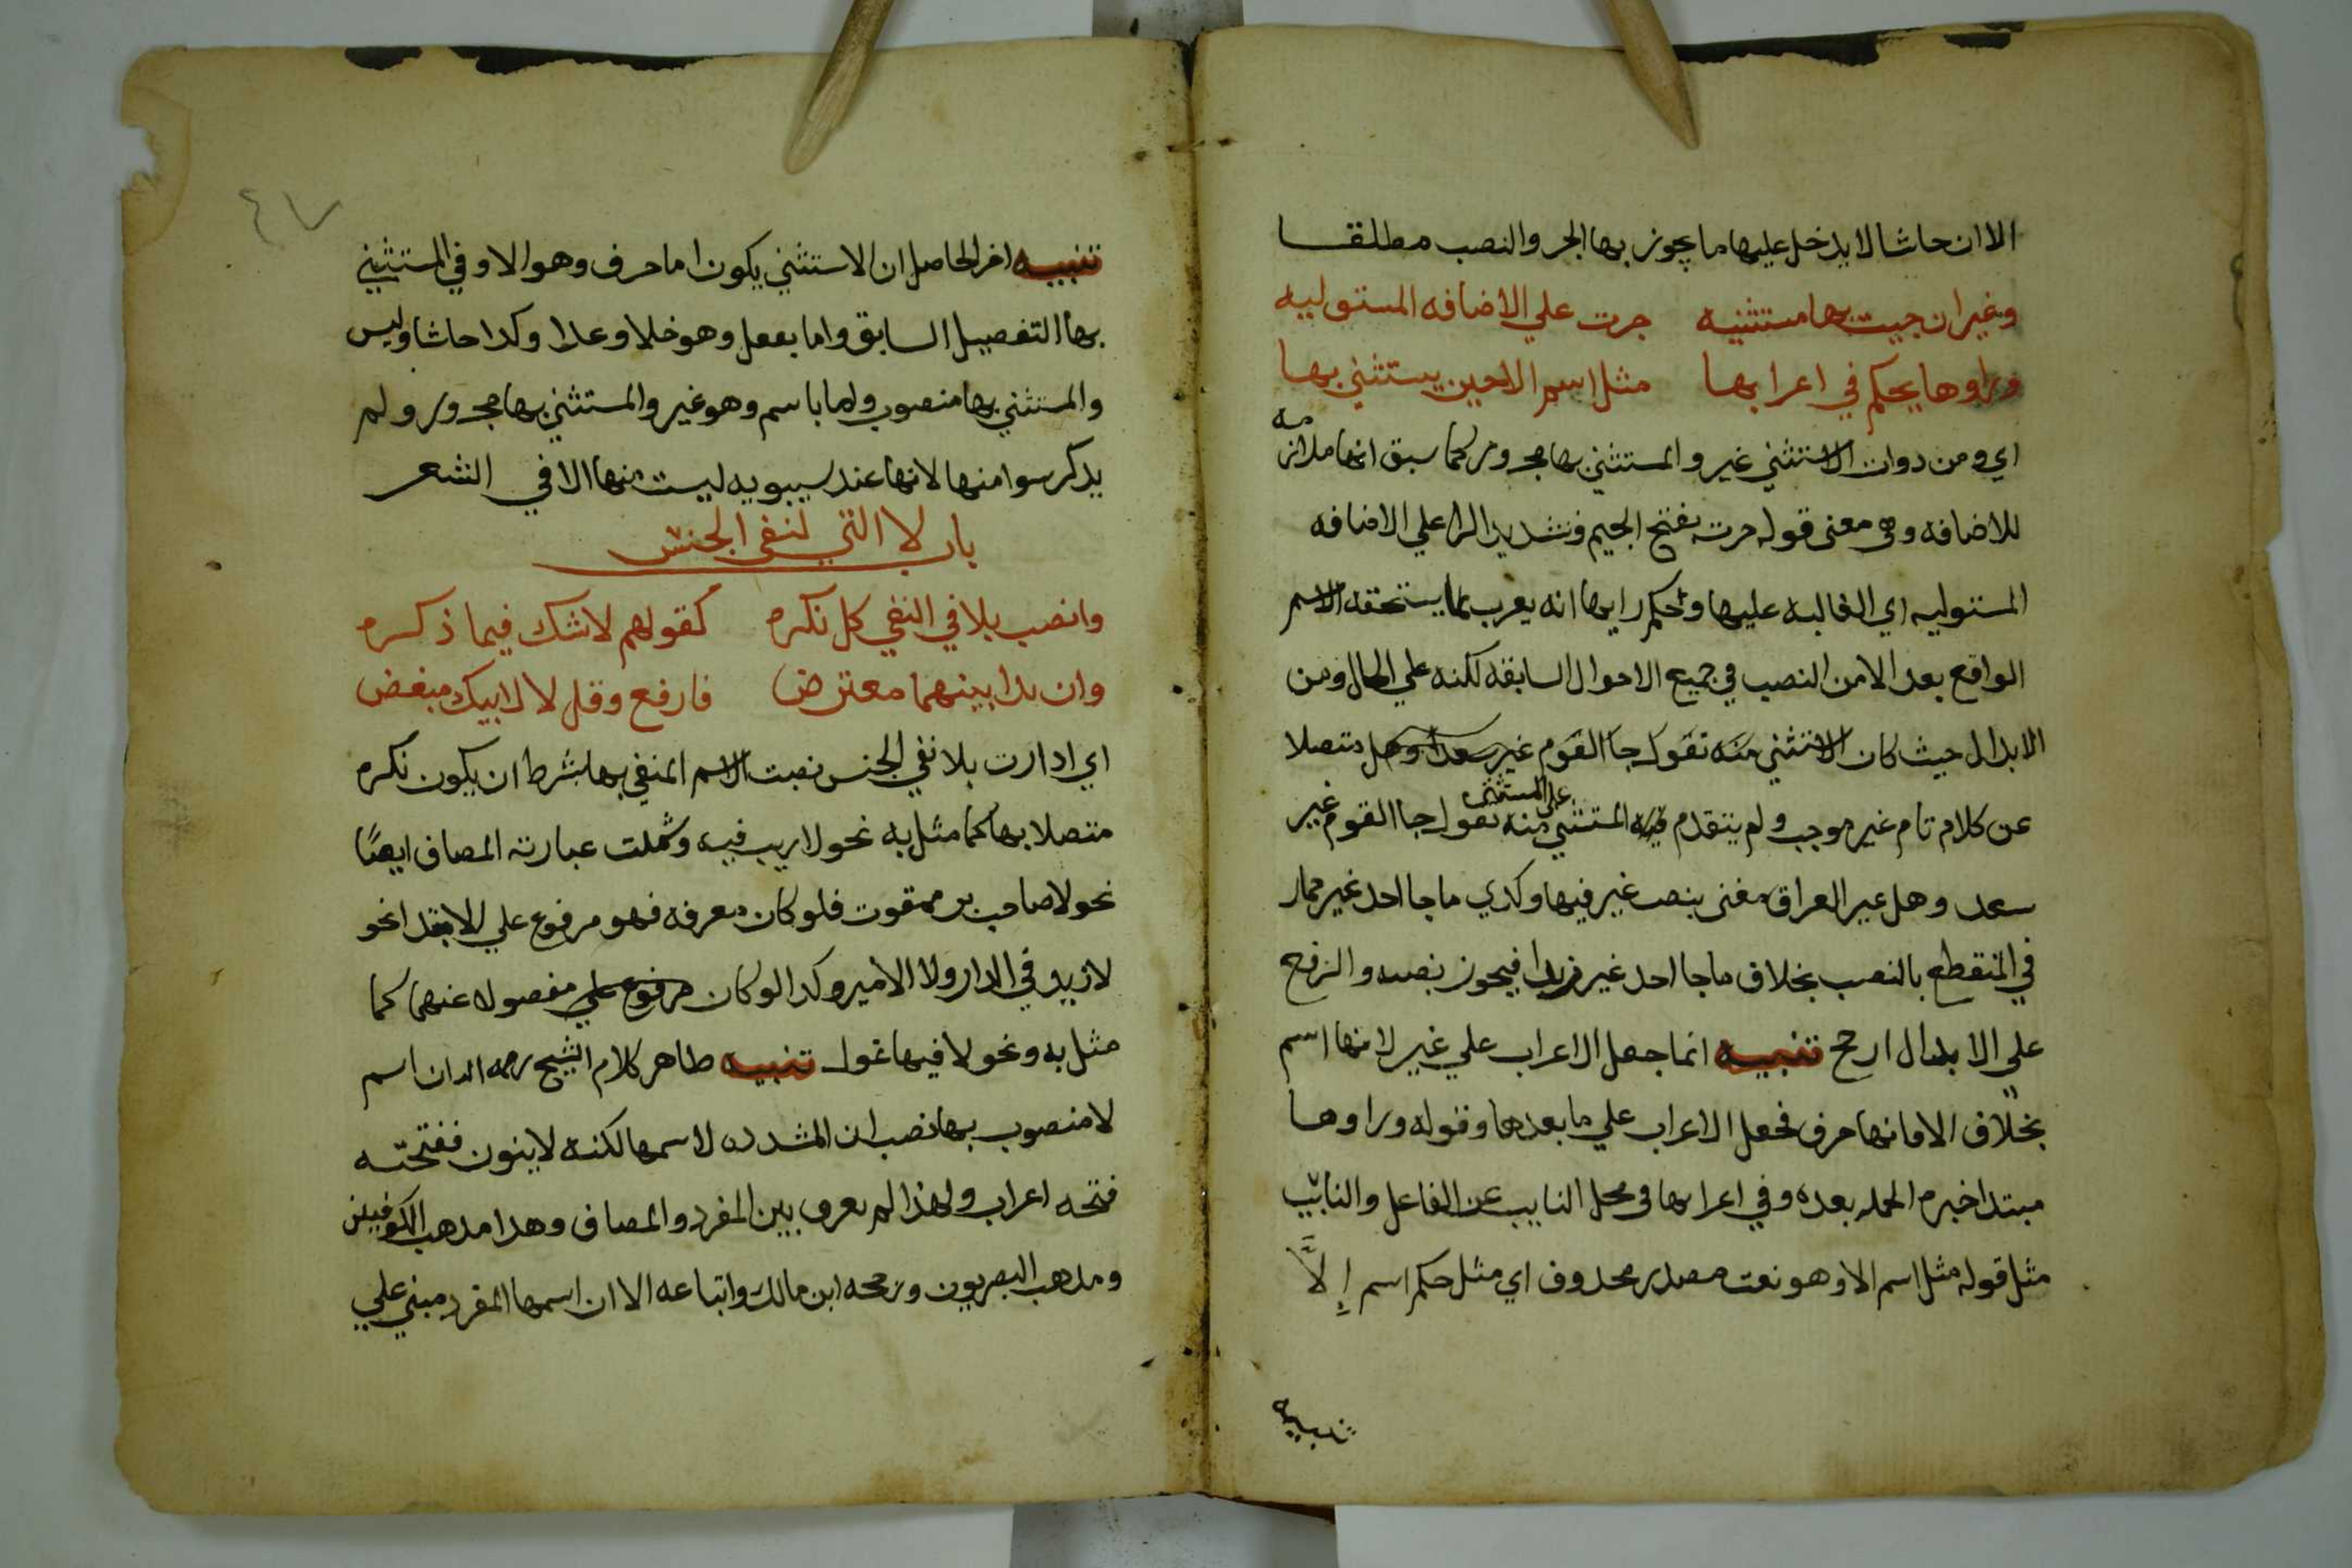 الا ان حاشا لا يدخل عليها ما يجوز بها الجر والنصب مطلقا
وغير ان جيت بها مستثنيه جرت علي الاضافه المستوليه
وراوها يحكم في اعرابها مثل اسم الا حين يستثني بها
اي ومن دوات الاستثني غير والمستثني بها مجرور كما سبق انها ملازمه
للاضافه وهي معني قوله جرت بفتح الجيم وتشديد الرا علي الاضافه
المستوليه اي الغالبه عليها وتحكم رايها انه يعرب بما يستحقه الاسم
الواقع بعد الا من النصب في جميع الاحوال السابقه لكنه علي الحال ومن
الابدال حيث كان الاستثني منه تقول جا القوم غير سعد وهل متصلا
عن كلام تام غير موجب ولم يتقدم فيه المستثني علي المستثني منه تقول جا القوم غير
سعد وهل غير العراق مغني بنصب غير فيها وكدي ما جا احد غير حمار
في المنقطع بالنصب بخلاف ما جا احد غير زيدا فيجوز نصبه والرفع
علي الابدال ارجح تنبيه انما جعل الاعراب علي غير لانها اسم
بخلاف الا فانها حرف فجعل الاعراب علي ما بعدها وقوله وراوها
مبتدا خبره الجمله بعده وفي اعرابها في محل النايب عن الفاعل والنايب
مثل قوله مثل اسم الا وهو نعت مصدر محدوف اي مثل حكم اسم إلاَّ
تنبيه
٤٧
تنبيه اخر الحاصل ان الاستثني يكون اما حرف وهو الا وفي المستثني
بها التفصيل السابق واما بفعل وهو خلا وعدا وكدا حاشا وليس
والمستثني بها منصوب واما باسم وهو غير والمستثني بها مجرور ولم
يدكر سوا منها لانها عند سيبويه ليست منها الا في الشعر
باب لا التي لنفي الجنس
وانصب بلا في النفي كل نكره كقولهم لا شك فيما ذكره
وان بدا بينهما معترض فارفع وقل لا لابيك مبغض
اي ادا ارت بلا نفي الجنس نصبت الاسم المنفي بها بشرط ان يكون نكره
متصلا بها كما مثل به نحو لا ريب فيه وشملت عبارته المضاف ايضًا
نحو لا صاحب بر ممقوت فلو كان معرفه فهو مرفوع علي الابتدا نحو
لا زيد في الدار ولا الامير وكدا لو كان مرفوع علي مفصوله عنها كما
مثل به ونحو لا فيها غول تنبيه ظاهر كلام الشيخ رحمه الله ان اسم
لا منصوب بها نصب ان المشدده لاسمها لكنه لا ينون ففتحته
فتحه اعراب ولهذا لم يعرف بين المفرد والمضاف وهدا مدهب الكوفيين
ومدهب البصريون ورجحه ابن مالك واتباعه الا ان اسمها المفرد مبني علي